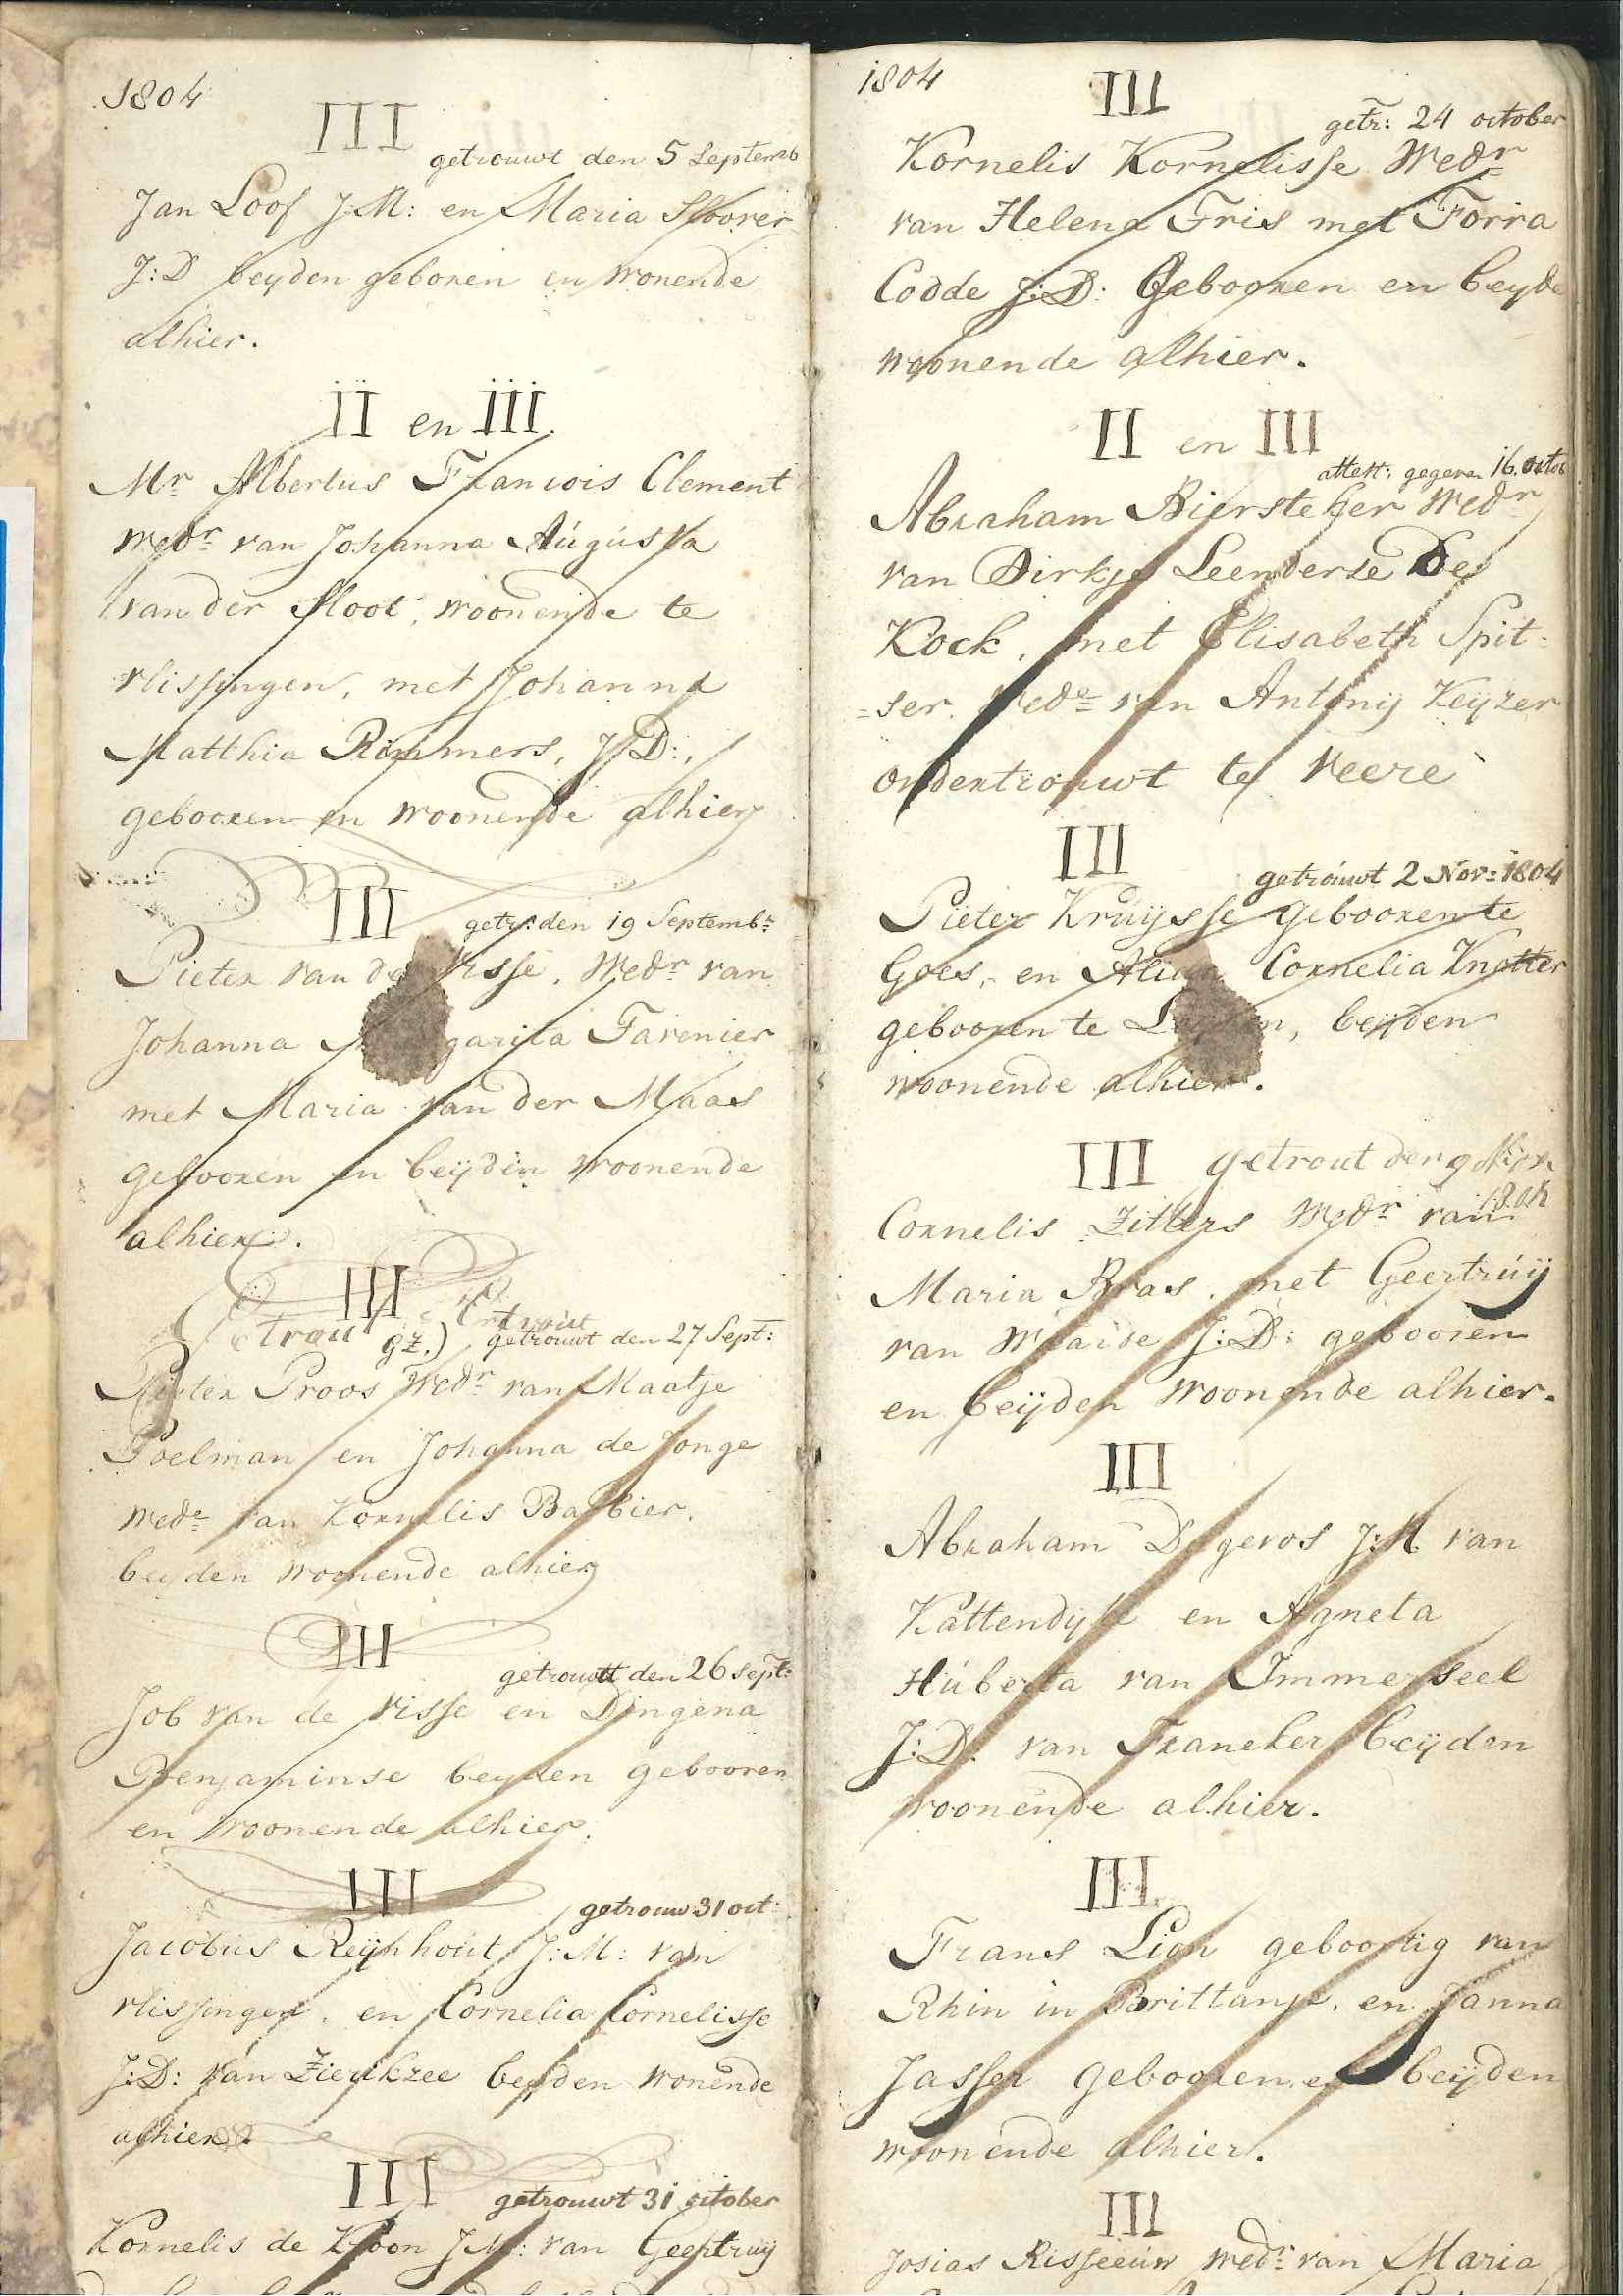 1804
III
getrouwt den 5 Septemb
Jan Loof J:M: en Maria Sloover
J:D beyden geboren en wonende
alhier.
II en III.
Mr Albertus Francois Clement
wedr van Johanna Augusta
van der Sloot, woonende te
vlissingen, met Johanna
Matthia Rommers, J:D:,
gebooren en woonende alhier
III
getr: den 19 Septembr
Pieter van de Visse, Wedr van
Johanna Margarita Tavenier
met Maria van der Maas
gebooren en beijden woonende
alhier.
III
getrouwt den 27 Sept:
Pieter Proos Wedr van Maatje
Poelman en Johanna de Jonge
wede van Kornelis Barbier,
beyden woonende alhier
III
getrouwtt den 26 Sept:
Job van de Visse en Dingena
Benjaminse beyden gebooren
en woonende alhier.
III
getrouw 31 oct:
Jacobus Reijnhout J:M: van
vlissingen, en Cornelia Cornelisse
J:D: van Zierikzee beyden wonende
alhier.
III
getrouwt 31 october
Kornelis de Kroon J:M: van Geertruij
1804
III
getr: 24 october
Kornelis Kornelisse Wedr
van Helena Fris met Forra
Codde J:D: Gebooren en beyde
woonende alhier.
II en III
attest: gegeven 16. octob
Abraham Biersteker Wedr
van Dirkje Leenderse De
Kock, met Elisabeth Spit=
=ser. Wede van Antonij Keyzer
ondertrouwt te Veere
III
getrouwt 2 Nov: 1804
Pieter Kruijsse gebooren te
Goes, en Cornelia Knotter
gebooren te beijden
woonende alhier.
III
getrout den 9 Nov.
1804
Cornelis Zitters Wedr van
Maria Bras, met Geertruij
van Waarde J:D: gebooren
en beijden woonende alhier.
III
Abraham Degevos J:M van
Kattendijke en Agneta
Huberta van Immerseel
J:D: van Franeker, beijden
woonende alhier.
III
Frans Lion geboortig van
Rhin in Brittanje, en Janna
Jasser gebooren en beijden
woonende alhier.
III
Josias Risseeuw wedr van Maria